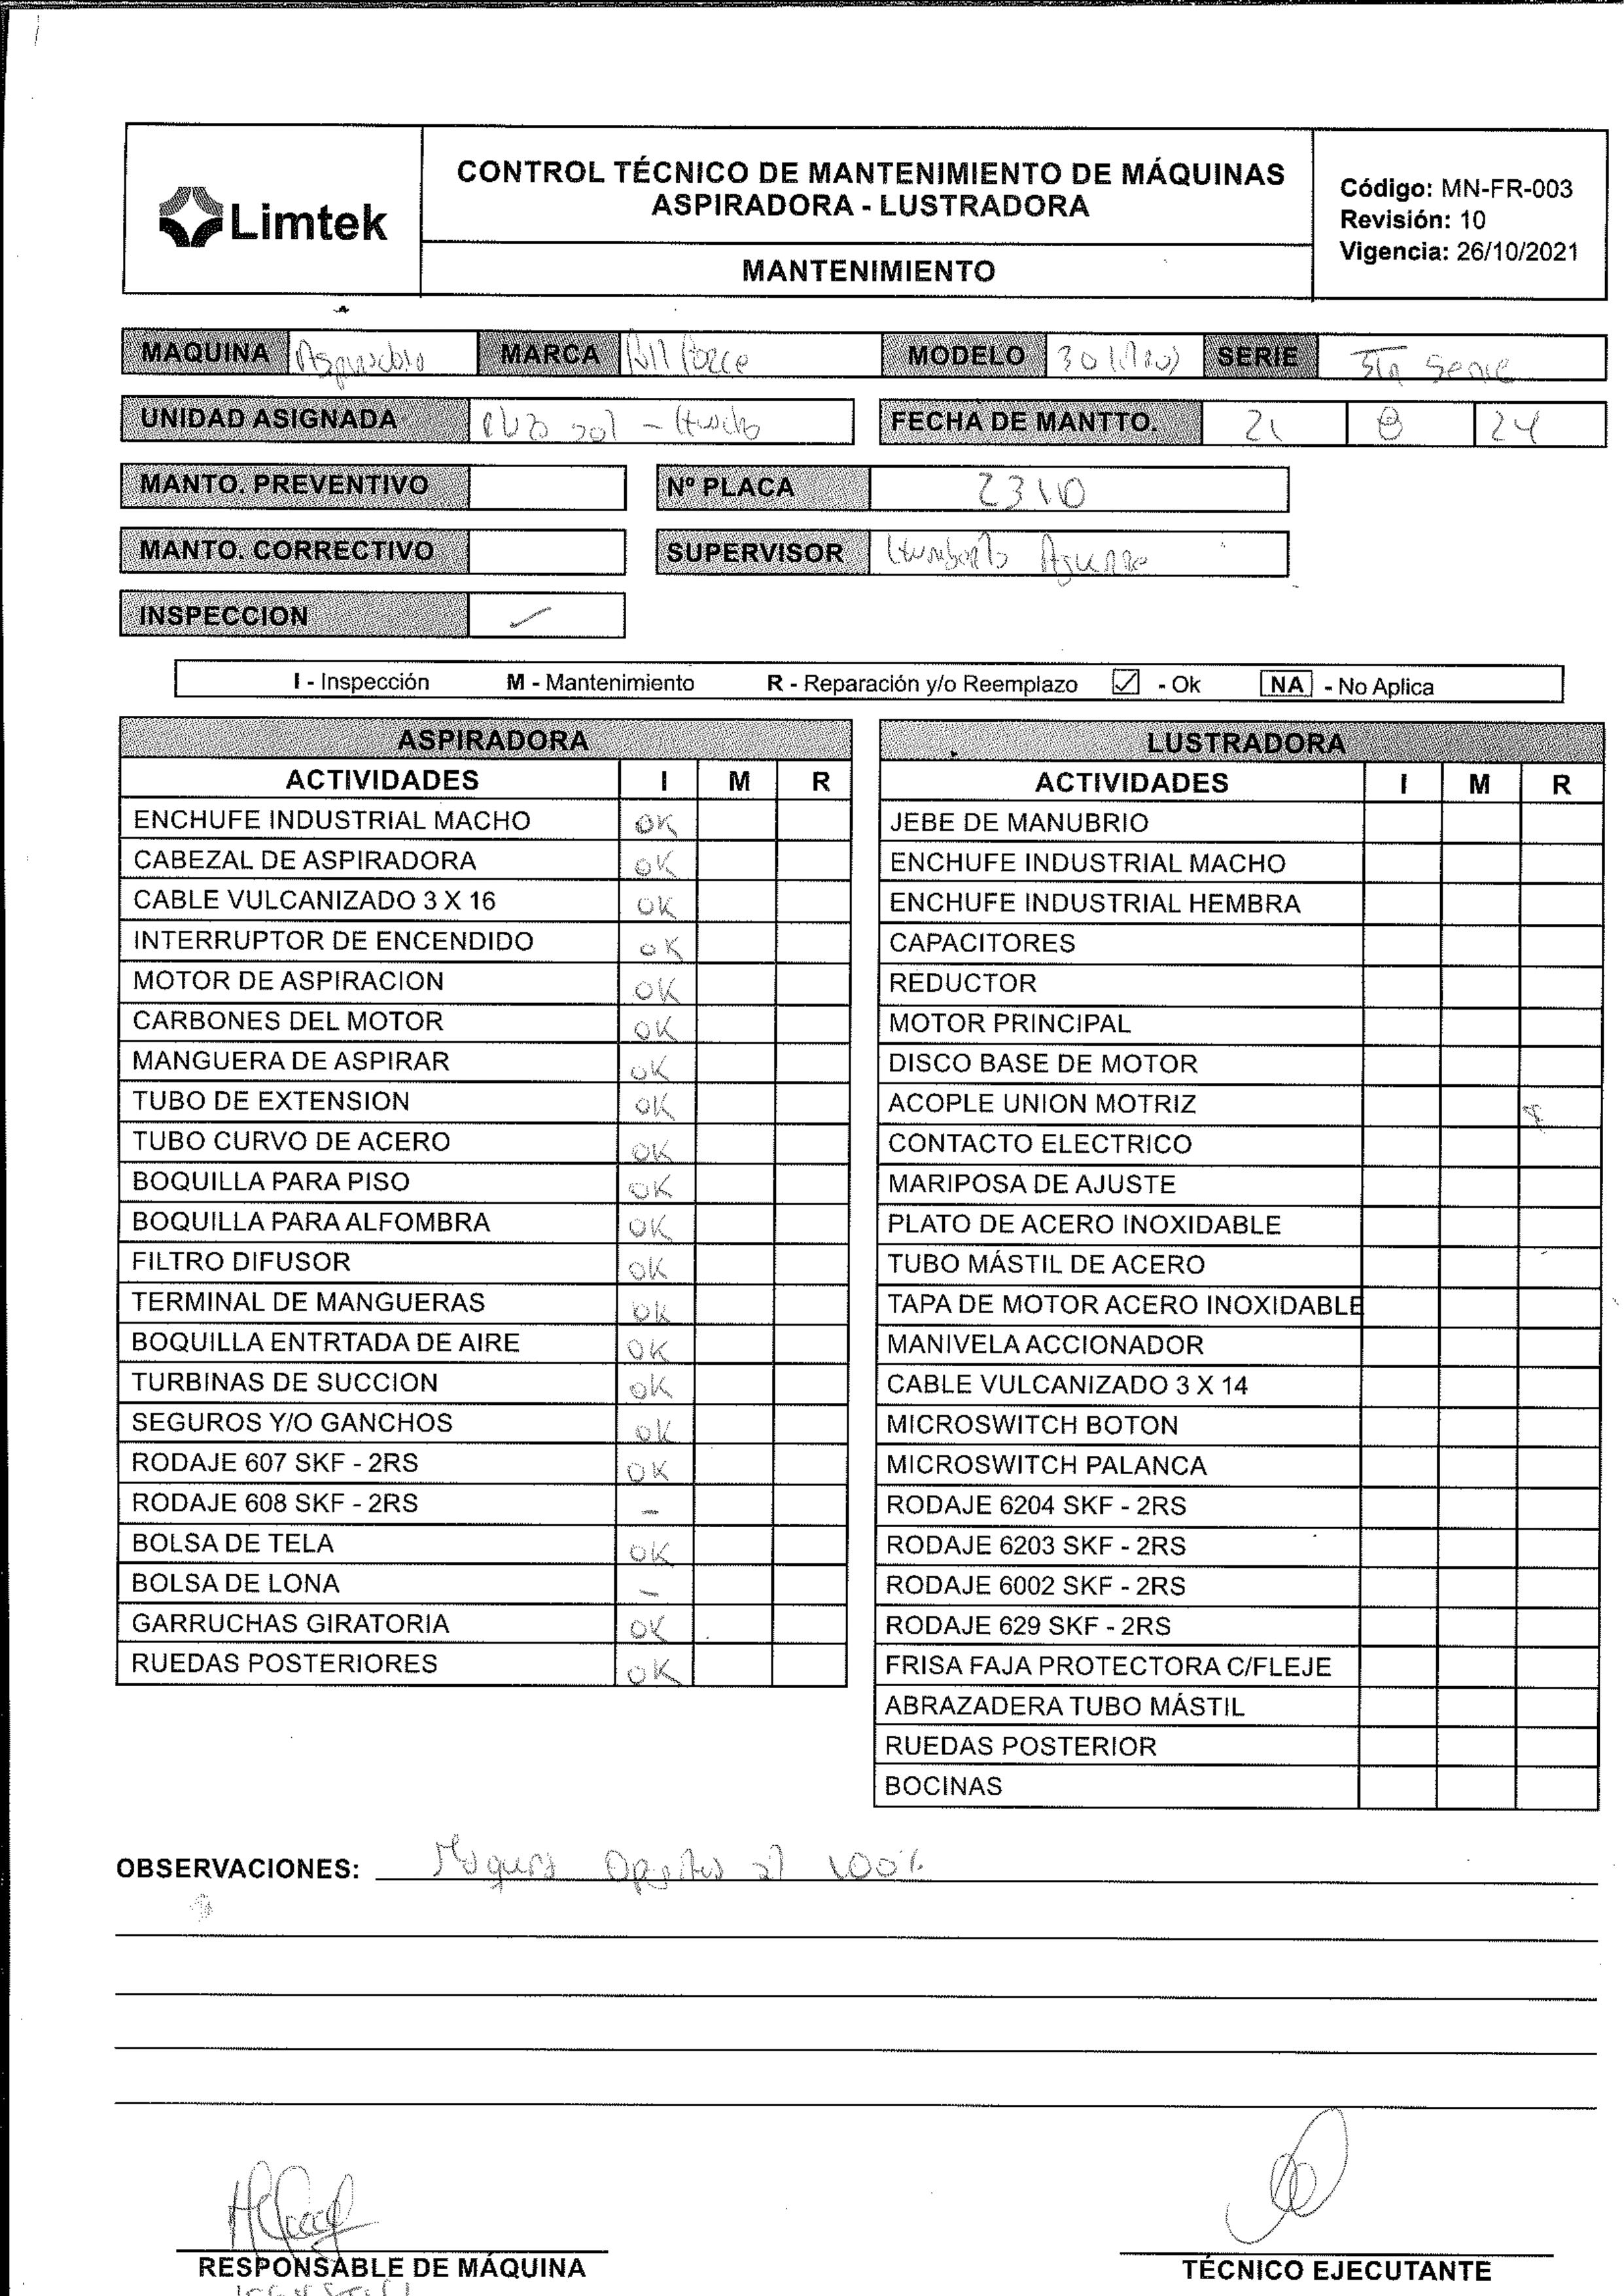 Limtek
CONTROL TÉCNICO DE MANTENIMIENTO DE MÁQUINAS
ASPIRADORA - LUSTRADORA
MANTENIMIENTO
Código: MN-FR-003
Revisión: 10
Vigencia: 26/10/2021
MAQUINA MARCA MODELO SERIE
UNIDAD ASIGNADA FECHA DE MANTTO. 21 8 24
MANTO. PREVENTIVO Nº PLACA 23110
MANTO. CORRECTIVO SUPERVISOR Humberto Aguirre
INSPECCION ✓
I - Inspección M - Mantenimiento R - Reparación y/o Reemplazo ☑ - Ok NA - No Aplica
ASPIRADORA
ACTIVIDADES I M R
ENCHUFE INDUSTRIAL MACHO OK
CABEZAL DE ASPIRADORA OK
CABLE VULCANIZADO 3 X 16 OK
INTERRUPTOR DE ENCENDIDO OK
MOTOR DE ASPIRACION OK
CARBONES DEL MOTOR OK
MANGUERA DE ASPIRAR OK
TUBO DE EXTENSION OK
TUBO CURVO DE ACERO OK
BOQUILLA PARA PISO OK
BOQUILLA PARA ALFOMBRA OK
FILTRO DIFUSOR OK
TERMINAL DE MANGUERAS OK
BOQUILLA ENTRTADA DE AIRE OK
TURBINAS DE SUCCION OK
SEGUROS Y/O GANCHOS OK
RODAJE 607 SKF - 2RS OK
RODAJE 608 SKF - 2RS -
BOLSA DE TELA OK
BOLSA DE LONA -
GARRUCHAS GIRATORIA OK
RUEDAS POSTERIORES OK
LUSTRADORA
ACTIVIDADES I M R
JEBE DE MANUBRIO
ENCHUFE INDUSTRIAL MACHO
ENCHUFE INDUSTRIAL HEMBRA
CAPACITORES
REDUCTOR
MOTOR PRINCIPAL
DISCO BASE DE MOTOR
ACOPLE UNION MOTRIZ
CONTACTO ELECTRICO
MARIPOSA DE AJUSTE
PLATO DE ACERO INOXIDABLE
TUBO MÁSTIL DE ACERO
TAPA DE MOTOR ACERO INOXIDABLE
MANIVELA ACCIONADOR
CABLE VULCANIZADO 3 X 14
MICROSWITCH BOTON
MICROSWITCH PALANCA
RODAJE 6204 SKF - 2RS
RODAJE 6203 SKF - 2RS
RODAJE 6002 SKF - 2RS
RODAJE 629 SKF - 2RS
FRISA FAJA PROTECTORA C/FLEJE
ABRAZADERA TUBO MÁSTIL
RUEDAS POSTERIOR
BOCINAS
OBSERVACIONES: al 100%
RESPONSABLE DE MÁQUINA
TÉCNICO EJECUTANTE